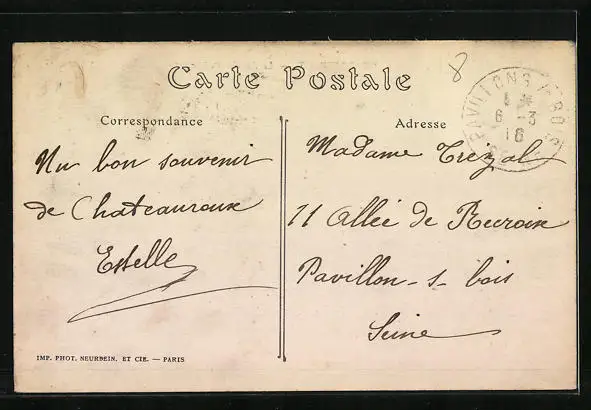 Carte Postale
8
PAVILLONS S BOIS
6-3
16
Correspondance
Un bon souvenir
de Chateauroux
Estelle
Adresse
Madame Trézal
11 Allée de
Pavillon-s-bois
Seine
IMP. PHOT. NEURDEIN. ET CIE. — PARIS